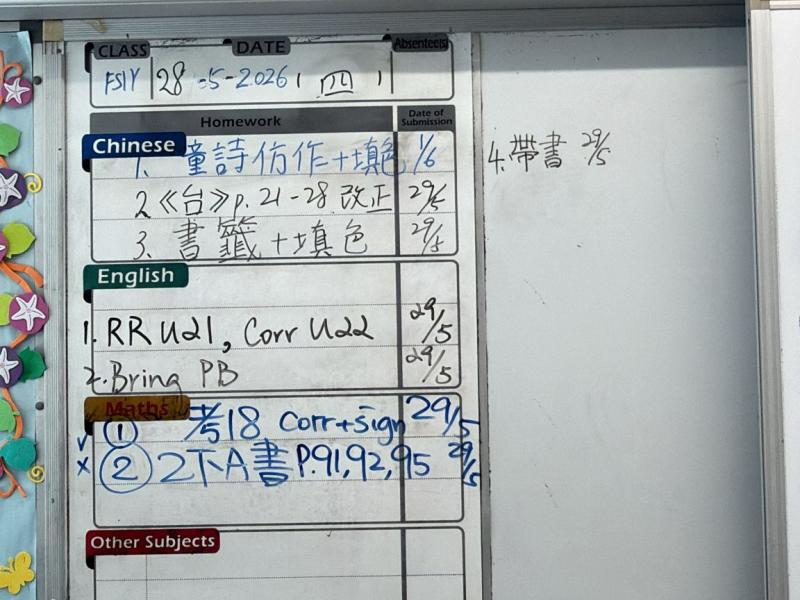 CLASS DATE Absentees
28-5-2026 (四)
Homework Date of Submission
Chinese
1. 童詩仿作+填色 1/6
2.《台》p.21-28 改正 29/5
3. 書籤+填色 29/5
4. 帶書 29/5
English
1. RR U21, Corr U22 29/5
2. Bring PB 29/5
Maths
✓ ① 考18 Corr+sign 29/5
x ② 2下A書 P.91,92,95 29/5
Other Subjects